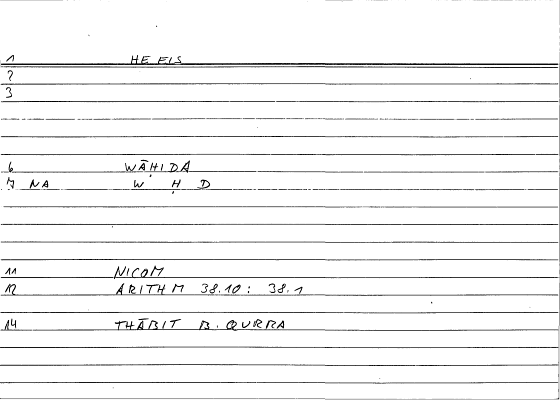 1 HE EIS
2
3
6 WĀḤIDA
7 NA W Ḥ D
11 NICOM
12 ARITHM 38.10 : 38.1
14 THĀBIT B. QURRA